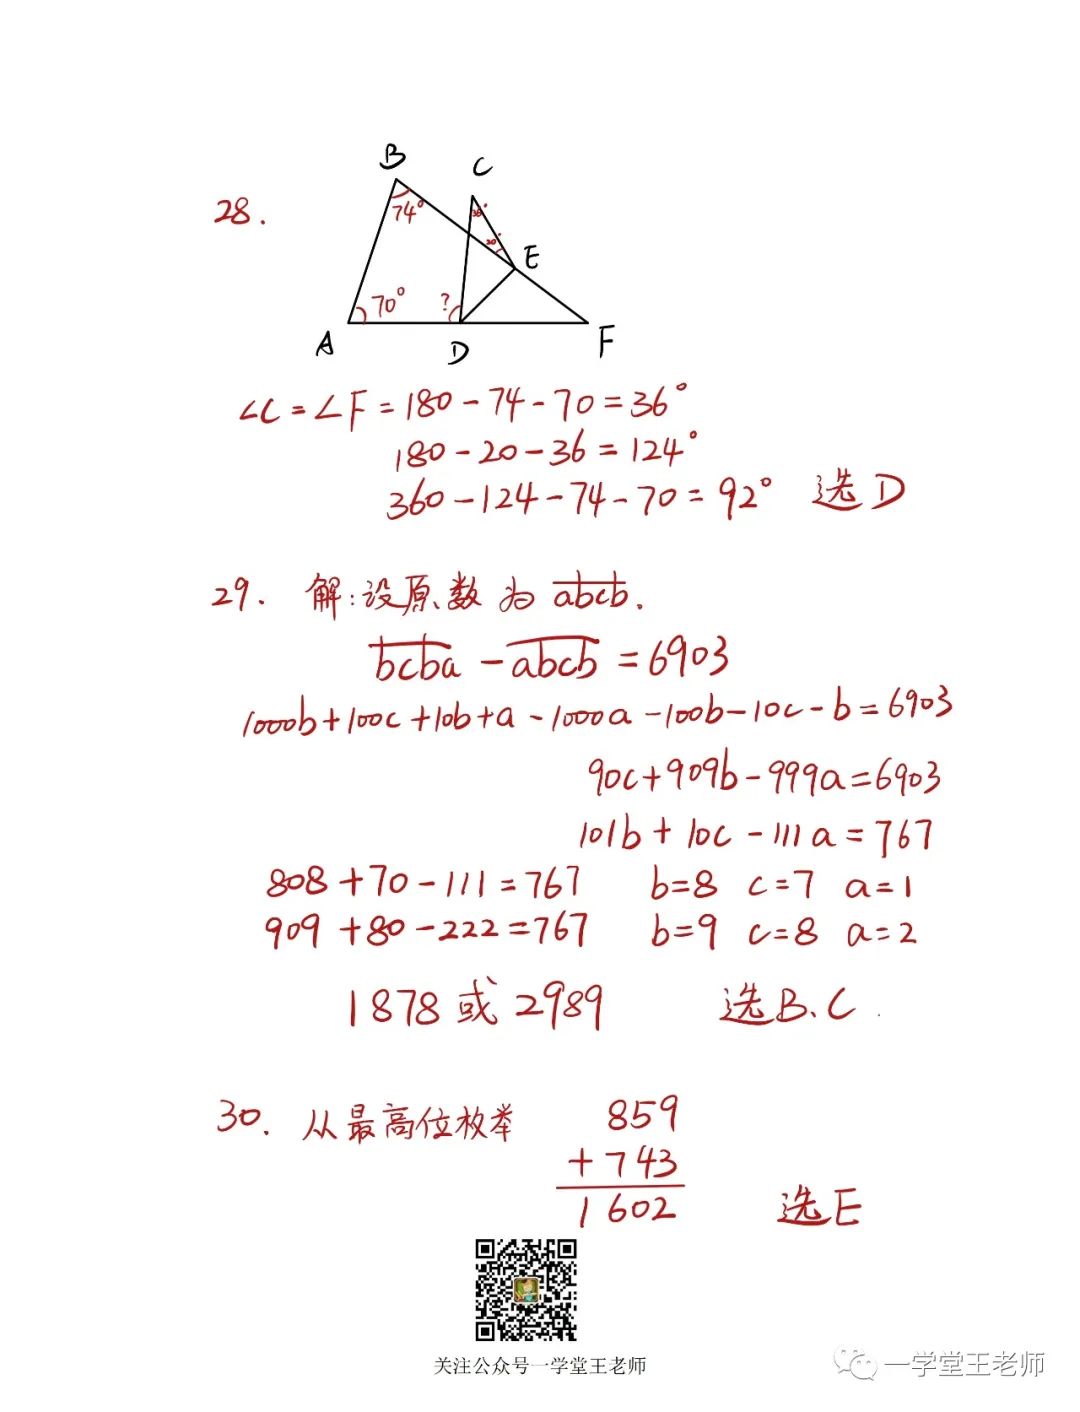 28.
B
C
74°
36°
20°
E
70°
?
A
D
F
∠C=∠F=180-74-70=36°
180-20-36=124°
360-124-74-70=92° 选D
29. 解:设原数为 a̅b̅c̅b̅.
b̅c̅b̅a̅ - a̅b̅c̅b̅ = 6903
1000b+100c+10b+a-1000a-100b-10c-b=6903
90c+909b-999a=6903
101b+10c-111a=767
808+70-111=767 b=8 c=7 a=1
909+80-222=767 b=9 c=8 a=2
1878或2989 选B、C.
30. 从最高位枚举 859
+743
1602 选E
关注公众号一学堂王老师
一学堂王老师